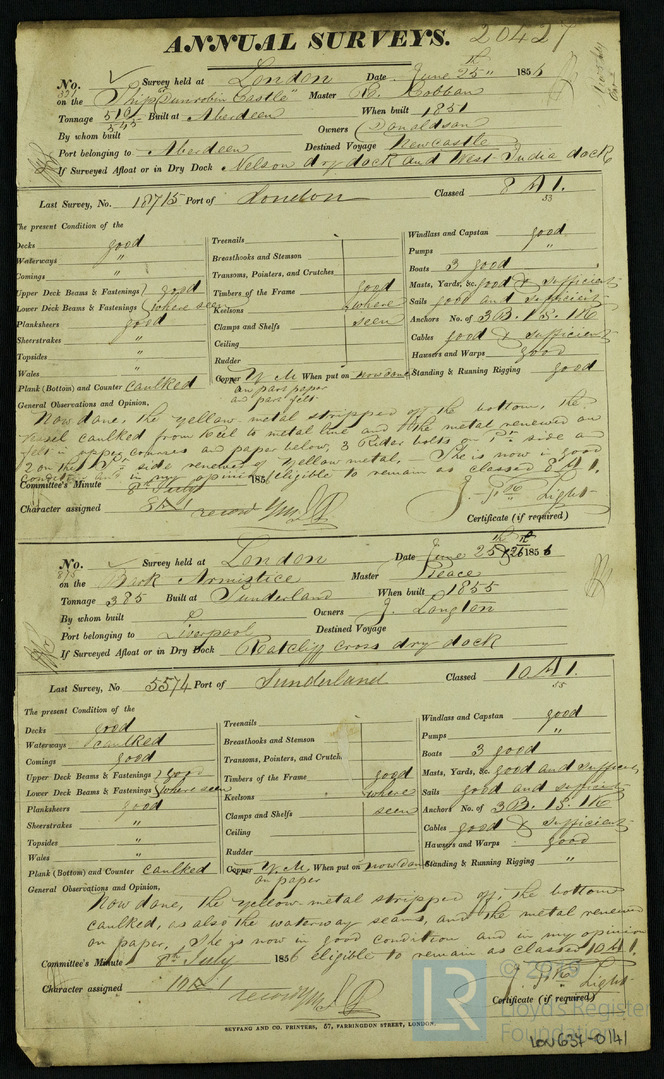 ANNUAL SURVEYS. 20427
No. 821 Survey held at London Date June 25th 1856
on the Ship "Dunrobin Castle" Master B. Cobban
Tonnage 516/545 Built at Aberdeen When built 1851
By whom built Owners Donaldson
Port belonging to Aberdeen Destined Voyage Newcastle
If Surveyed Afloat or in Dry Dock Nelson dry dock and West India dock
Last Survey, No. 18715 Port of London Classed 8 A 1. 53
The present Condition of the
Decks good
Waterways "
Comings "
Upper Deck Beams & Fastenings } good
Lower Deck Beams & Fastenings } where seen
Planksheers good
Sheerstrakes "
Topsides "
Wales "
Plank (Bottom) and Counter caulked
Treenails
Breasthooks and Stemson
Transoms, Pointers, and Crutches
Timbers of the Frame good
Keelsons where
Clamps and Shelfs seen
Ceiling
Rudder
Copper Y. M. When put on now done
on part paper
on part felt
Windlass and Capstan good
Pumps "
Boats 3 good
Masts, Yards, &c. good & sufficient
Sails good and sufficient
Anchors No. of 3 B. 1 S. 1 K
Cables good & sufficient
Hawsers and Warps good
Standing & Running Rigging good
General Observations and Opinion,
Now done, the yellow metal stripped off the bottom, the
vessel caulked from keel to metal line and the metal renewed on
felt in upper courses and paper below, 3 Rider bolts on side and
2 on the side renewed of yellow metal, – She is now in good
condition and in my opinion eligible to remain as classed 8 A 1.
Committee's Minute 8th July 1856
Character assigned 8 A 1 record YM
J. Light
Certificate (if required)
No. 815 Survey held at London Date June 25 & 26th 1856
on the Bark Armistice Master Peace
Tonnage 385 Built at Sunderland When built 1855
By whom built Owners J. Longton
Port belonging to Liverpool Destined Voyage
If Surveyed Afloat or in Dry Dock Ratcliff Cross dry dock
Last Survey, No 5574 Port of Sunderland Classed 10 A 1. 55
The present Condition of the
Decks good
Waterways caulked
Comings good
Upper Deck Beams & Fastenings } good
Lower Deck Beams & Fastenings } where seen
Planksheers good
Sheerstrakes "
Topsides "
Wales "
Plank (Bottom) and Counter caulked
Treenails
Breasthooks and Stemson
Transoms, Pointers, and Crutch.
Timbers of the Frame good
Keelsons where
Clamps and Shelfs seen
Ceiling
Rudder
Copper Y. M. When put on now done
on paper
Windlass and Capstan good
Pumps "
Boats 3 good
Masts, Yards, &c. good and sufficient
Sails good and sufficient
Anchors No. of 3 B. 1 S. 1 K
Cables good & sufficient
Hawsers and Warps good
Standing & Running Rigging "
General Observations and Opinion,
Now done, the yellow metal stripped off, the bottom
caulked, as also the waterway seams, and the metal renewed
on paper, She is now in good condition and in my opinion
eligible to remain as classed 10 A 1.
Committee's Minute 8th July 1856
Character assigned 10 A 1 record YM
J. Light
Certificate (if required)
SEYFANG AND CO. PRINTERS, 57, FARRINGDON STREET, LONDON.
LR © 2019
Lloyd's Register
Foundation
LON637-0141